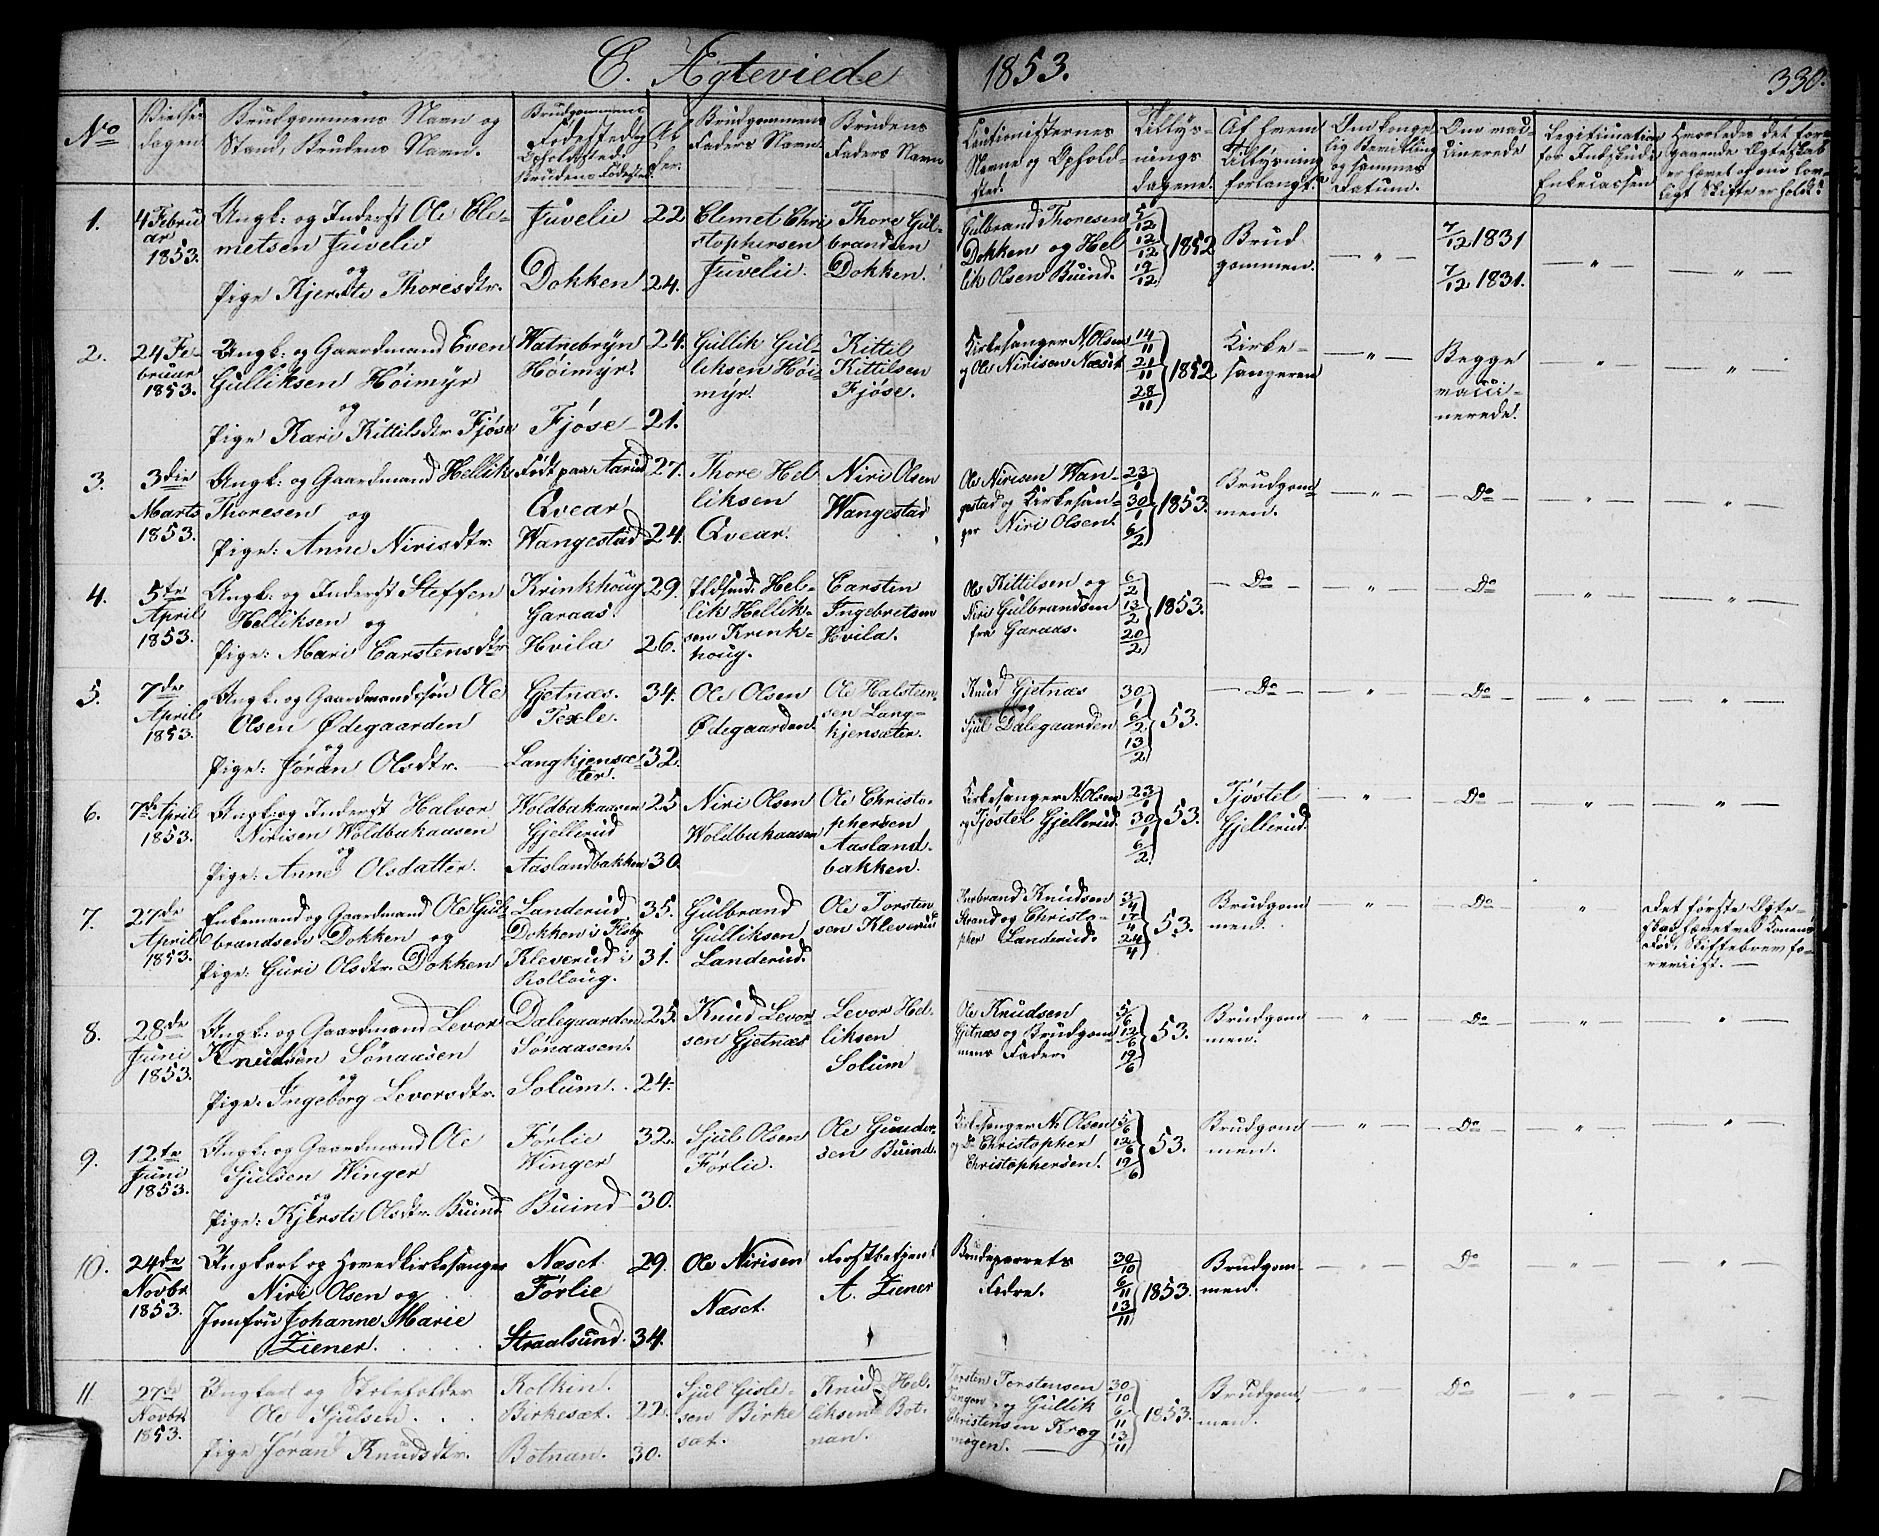 C. Ægteviede 1853. 330.
No
Vielses
dagen.
Brudgommens Navn og
Stand, Brudens Navn.
Brudgommens
Fødested og
Opholdssted.
Brudens Fødested.
Al
der.
Brudgommens
Faders Navn.
Brudens
Faders Navn
Kautionisternes
Navne og Ophold-
sted.
Tillys-
nings
dagene.
Af hvem
Tillysning
forlangt.
Om konge-
lig Bevilling
og sammes
Datum.
Om vac-
cinerede
Legitimation
for Indskud i
Enkecassen
Hvorledes det for-
gaaende Ægteskab
er hævet og om lov-
ligt Skifte er holdt.
1.
4 Febru
ar
1853.
Ungk: og Inderst Ole Cle-
metsen Juvelie
og
Pige Kjersti Thoresdtr.
Juvelie
Dokken
22
24.
Clemet Chri
stophersen
Juvelie.
Thore Gul-
brandsen
Dokken.
Gulbrand Thoresen
Dokken og Hel
lik Olsen Buind.
5/12
12/12
19/12
1852
Brud
gommen.
— " —
7/12 1831
7/12 1831.
— " —
— " —
2.
24 Fe-
bruar
1853.
Ungk: og Gaardmand Even
Gulliksen Höimÿr
og
Pige Kari Kittilsdtr Fjöse
Watnebrÿn
Höimÿr.
Fjöse
24.
21.
Gullik Gul-
liksen Höi-
mÿr.
Kittil
Kittilsen
Fjöse.
Kirkesanger N. Olsen
og Ole Nirisen Næset
14/11
21/11
28/11
1852
Kirke-
sangeren
— " —
Begge
vacci-
nerede.
— " —
— " —
3.
3die
Marts
1853.
Ungk: og Gaardmand Hellik
Thoresen og
Pige: Anne Nirisdtr.
Født paa Aarud
Qvear
Wangestad
27.
24.
Thore Hel
liksen
Qvear.
Niri Olsen
Wangestad
Ole Nirisen Wan-
gestad og Kirkesan-
ger Niri Olsen.
23/1
30/1
6/2
1853.
Brudgom
men.
— " —
— Do —
— " —
— " —
4.
5te
April
1853.
Ungk: og Inderst Steffen
Helliksen og
Pige: Mari Carstensdtr
Krinkhoug
Garaas.
Hvila
29.
26.
Hel-
lik Hellik-
sen Krink-
houg.
Carsten
Ingebretsen
Hvila.
Ole Kittilsen og
Niri Gulbrandsen
fra Garaas.
6/2
13/2
20/2
1853.
— Do —
— " —
— Do —
— " —
— " —
5.
7de
April
1853.
Ungk: og Gaardmandssøn Ole
Olsen Ødegaarden
og
Pige: Jöran Olsdtr.
Gjetnæs.
Texle.
Langkjensæ-
ter.
34.
32.
Ole Olsen
Ødegaarden.
Ole Halsten-
sen Lang-
kjensæter.
Knud Gjetnæs
og
Sjul Dalegaarden
30/1
6/2
13/2
53.
— Do —
— " —
— Do —
— " —
— " —
6.
7de April
1853.
Ungk: og Inderst Halvor
Nirisen Woldbakaasen
og
Pige: Anne Olsdatter.
Woldbakaasen
Gjellerud
Aaslandbakken
25
30.
Niri Olsen
Woldbakaasen
Ole Christo-
phersen
Aasland-
bakken.
Kirkesanger N. Olsen
og Tjöstel Gjellerud.
23/1
30/1
6/2
53.
Tjöstel
Gjellerud.
— " —
— Do —
— " —
— " —
7.
27de
April
1853.
Enkemand og Gaardmand Ole Gul-
brandsen Dokken og
Pige: Guri Olsdtr. Dokken
Landerud
Dokken i Flsbg
Kleverud i
Rolloug.
35.
31.
Gulbrand
Gulliksen
Landerud.
Ole Torsten
sen Kleverud
Knudsen
Strand og Christo-
pher Landerud.
3/4
17/4
24/4
53.
Brudgom
men.
— " —
— Do —
— " —
Det første Ægte-
skab hævet ved Konens
Død. Skiftebrev fo-
reviist. —
8.
28de
Juni
1853.
Ungk: og Gaardmand Levor
Knudsen Sönaasen
og
Pige: Ingeborg Levorsdtr.
Dalegaarden
Sönaasen.
Solum.
25.
24.
Knud Levor-
sen Gjetnæs
Levor Hel-
liksen
Solum
Ole Knudsen
Gjetnæs og Brudgom
mens Fader.
5/6
12/6
19/6
53.
Brudgom
men.
— " —
— Do —
— " —
— " —
9.
12te
Juni
1853.
Ungk: og Gaardmand Ole
Sjulsen Winger
og
Pige: Kjersti Olsdtr. Buind
Förlie
Winger
Buind
32.
30.
Sjul Olsen
Förlie.
Ole Gunder-
sen Buind.
Kirkesanger N. Olsen
og Do Christopher
Christophersen.
5/6
12/6
19/6
53.
Brudgom
men.
— " —
— Do —
— " —
— " —
10.
24de
Novbr.
1853.
Ungkarl og Hovedkirkesanger
Niri Olsen og
Jomfru Johanne Marie
Ziener.
Næset.
Förlie
Straalsund.
29.
34.
Ole Nirisen
Næset.
Forstbetjent
A. Ziener
Brudeparrets
Fædre.
30/10
6/11
13/11
1853.
Brudgom-
men.
— " —
Do
— " —
— " —
11
27de
Novbr.
1853.
Ungkarl og Selveholder
Ole Sjulsen
Pige Jöran Knudsdtr.
Kolkin.
Birkesæt.
Botnan.
22.
30.
Sjul Gisle-
sen Birke
sæt.
Knud Hel-
liksen Bot-
nan.
Torsten Torstensen
og Gullik
Christensen Krog
mogen. —
30/10
6/11
13/11
1853.
Brudgom-
men.
— " —
Do
— " —
— " —